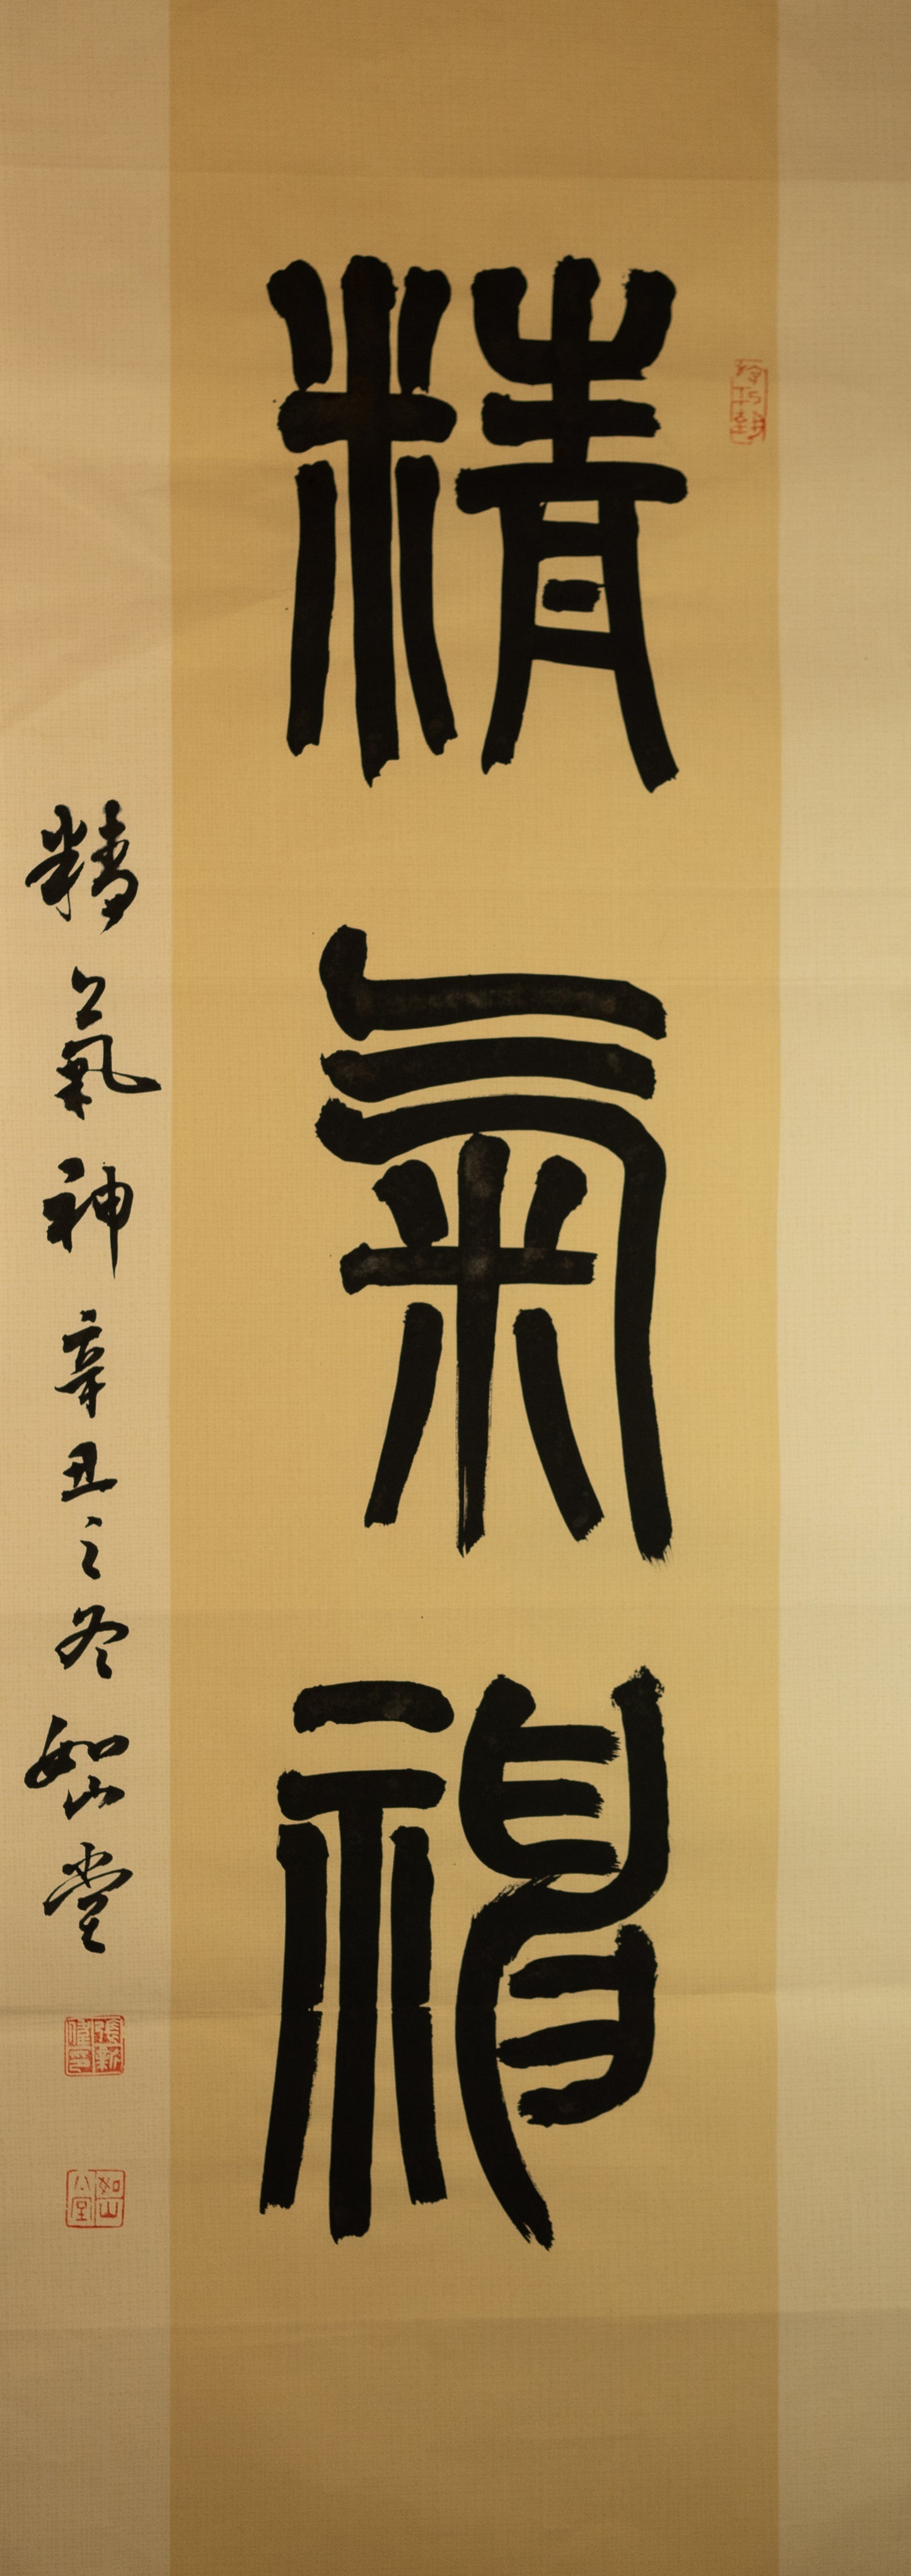 精氣神
精氣神 辛丑之冬 如山堂
如山堂